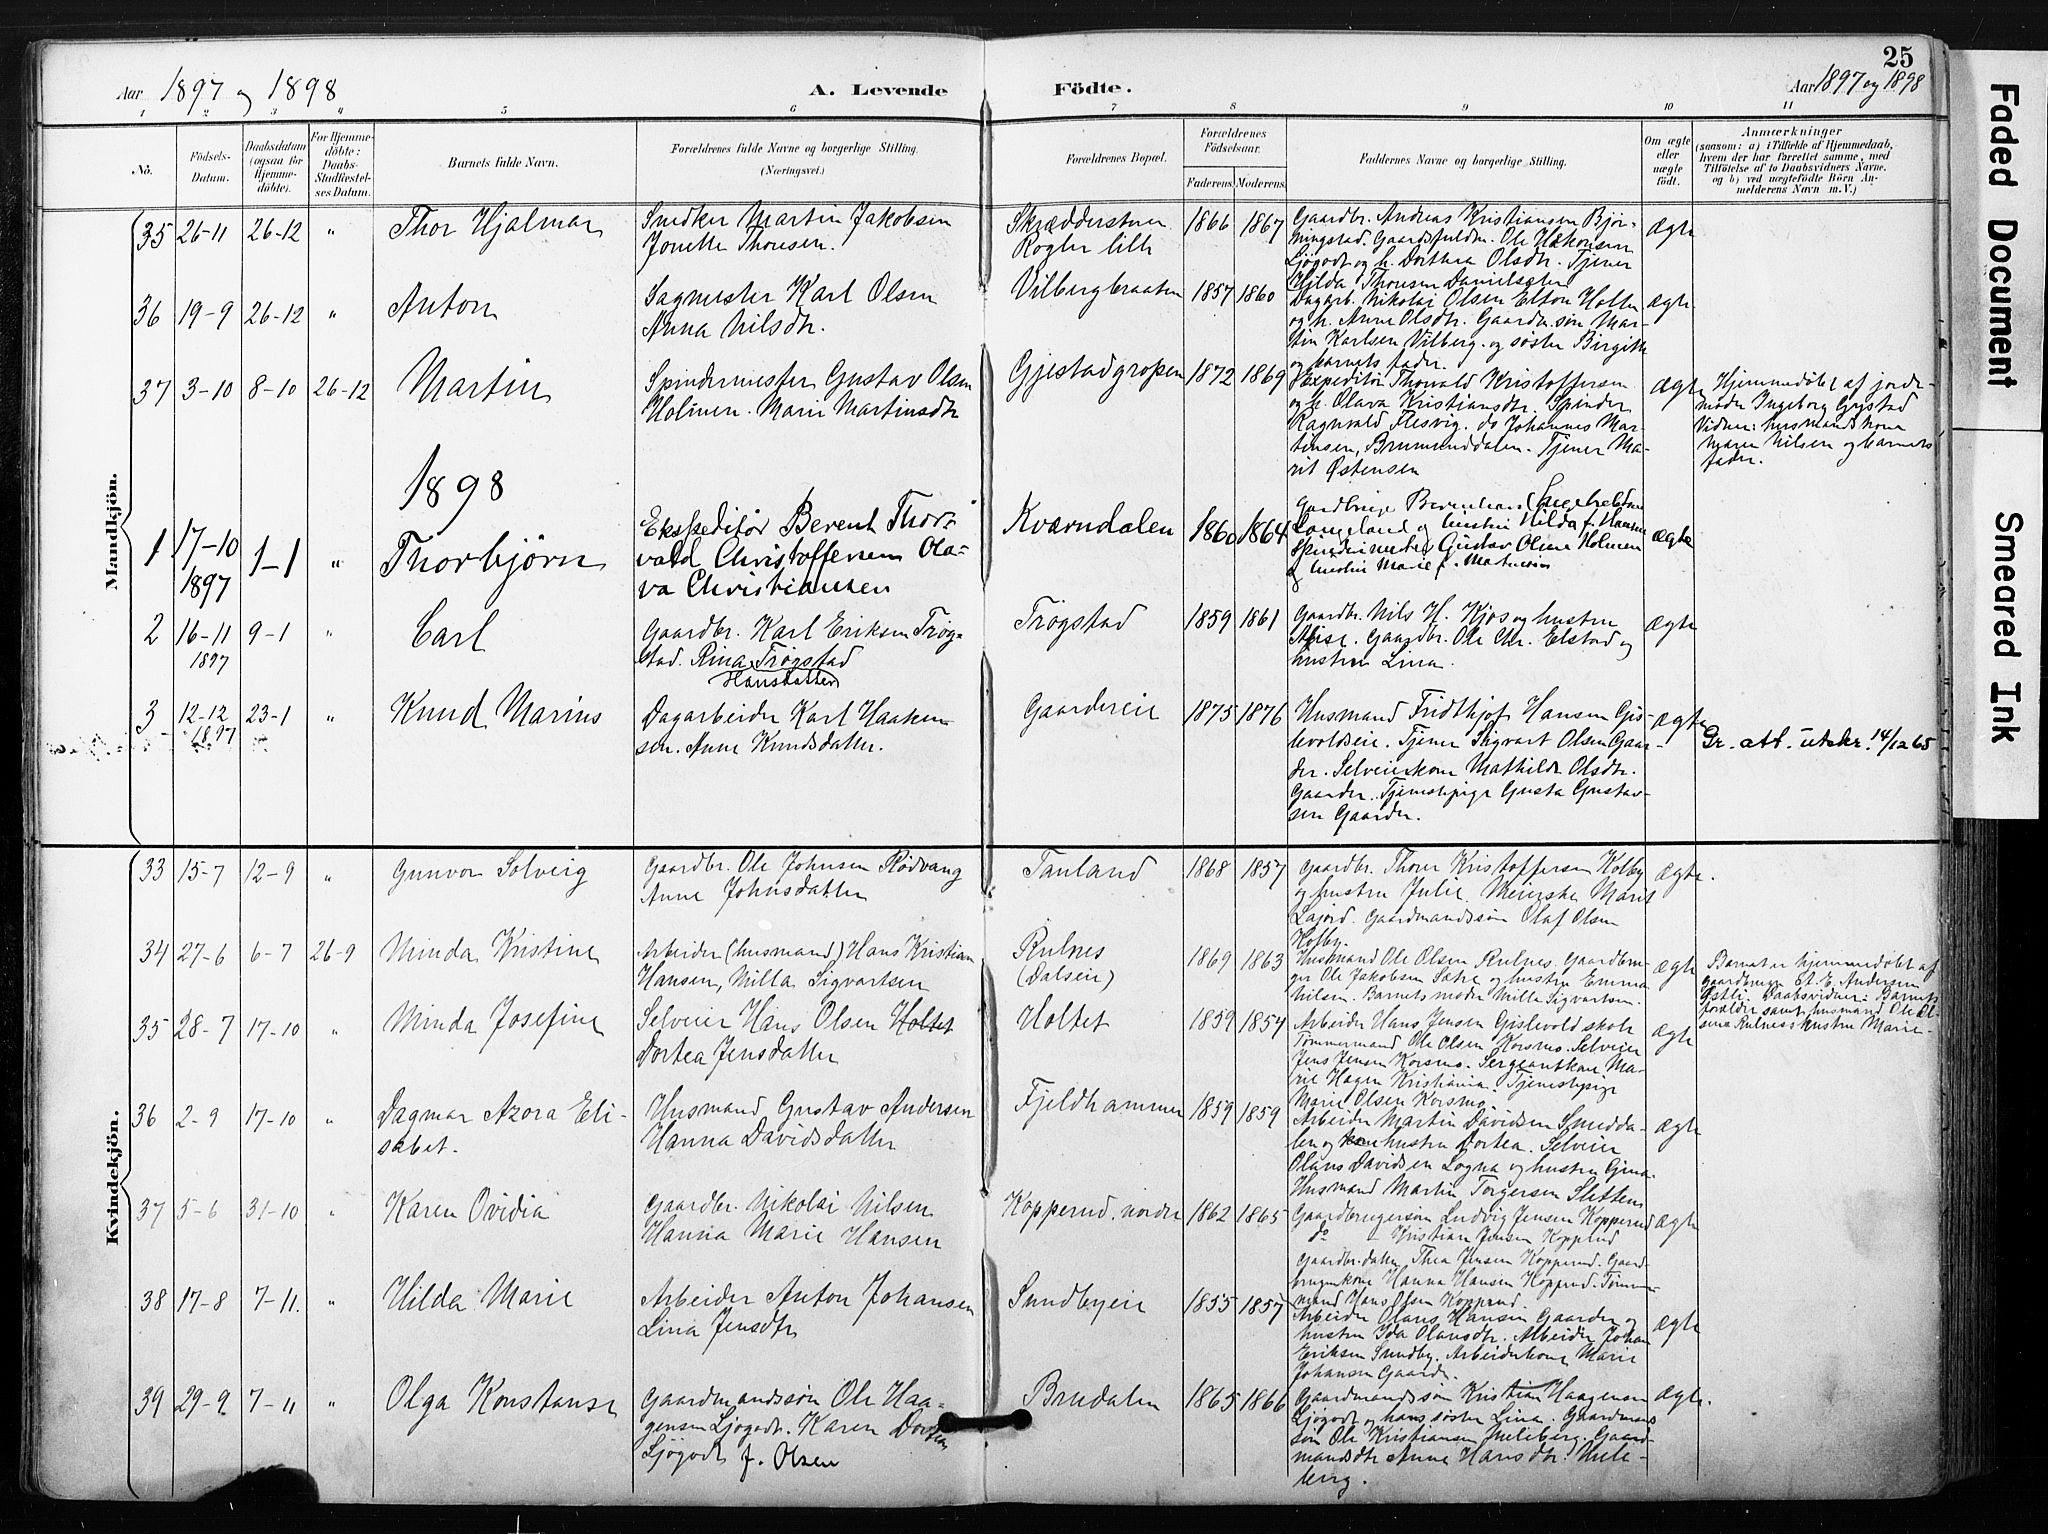 25
Aar 1897 og 1898
A. Levende
Födte.
Aar 1897 og 1898
1 2 3 4 5 6 7 8 9 10 11
No.
Födsels-Datum.
Daabsdatum (ogsaa for Hjemmedöbte).
For Hjemmedöbte: Daabs-Stadfæstelses Datum.
Barnets fulde Navn.
Forældrenes fulde Navne og borgerlige Stilling.
(Næringsvei.)
Forældrenes Bopæl.
Forældrenes Födselsaar.
Faderens. Moderens.
Faddernes Navne og borgerlige Stilling.
Om ægte eller uægte födt.
Anmærkninger
(saasom: a) i Tilfælde af Hjemmedaab,
hvem der har forrettet samme, med
Tilföielse af to Daabsvidners Navne,
og b) ved uægtefödte Börn An-
melderens Navn m. V.)
Mandkjön.
35 26-11 26-12 " Thor Hjalmar
Smedker Martin Jakobsen
Jonette Thoresen.
Skrædderstuen
Rogler lille
1866 1867
Gaardbr. Andreas Kristiansen Bjør-
ningstad. Gaardsfuldm. Ole Haakonsen
Sjögodt og h. Dorthea Olsdtr. Tjener
Hilda Thoresen Danielsæter
ægte
36 19-9 26-12 " Anton
Sagmester Karl Olsen
Anna Nilsdtr.
Vilbergbraaten
1857 1860
Dagarb. Nikolai Olsen Elton Holter
og h. Anne Olsdtr. Gaardm.søn Mar-
tin Karlsen Vilberg. og søster Birgitte
og barnets fader.
ægte
37 3-10 8-10 26-12 Martin
Spindermester Gustav Olsen
Holmen. Marie Martinsdtr
Gjestadgropen
1872 1869
Expeditör Thorvald Kristoffersen
og h. Olava Kristiansdtr. Spinder
Ragnvald Flesvig. do Johannes Mar-
tinsen, Brummunddalen. Tjener Ma-
rit Østensen
ægte
Hjemmedöbt af jorde-
moder Ingeborg Gystad
Vidner: husmandskone
Maren Nilsen og barnets
fader.
1898
1 17-10 1897 1-1 " Thorbjörn
Ekspeditör Berent Thor-
vald Christoffersen Ola-
va Christiansen
Kværndalen
1860 1864
Langeland og hustru Hilda f. Hansen
Spindermester Gustav Olsen Holmen
og hustru Marie f. Martinsen
ægte
2 16-11 1897 9-1 " Carl
Gaardbr. Karl Eriksen Trøg-
stad. Rina Trøgstad
Hansdatter
Trögstad
1859 1861
Gaardbr. Nils H. Kjos og hustru
Alise. Gaardbr. Ole Chr. Elstad og
hustru Lina.
ægte
3 12-12 1897 23-1 " Knud Marius
Dagarbeider Karl Haaken-
sen. Anne Knudsdatter.
Gaardereie
1875 1876
Husmand Fridthjof Hansen Gis-
levoldseie. Tjener Sigvart Olsen Gaar-
der. Selveierkone Mathilde Olsdtr.
Gaarder. Tjenestepige Gusta Gustav-
sen Gaarder.
ægte
Gr. att. utskr. 14/12 65
Kvindekjön.
33 15-7 12-9 " Gunvor Solveig
Gaardbr. Ole Johnsen Rödvang
Anne Johnsdatter
Tanland
1868 1857
Gaardbr. Thorer Kristoffersen Kolby
og hustru Julie. Meierske Marit
Lajord. Gaardmandssön Olaf Olsen
Kolby.
ægte.
34 27-6 6-7 26-9 Minda Kristine
Arbeider (husmand) Hans Kristian
Hansen, Milla Sigvartsen
Rulnes
(Dalseie)
1869 1863
Husmand Ole Olsen Rulnes. Gaardbru-
ger Ole Jakobsen Sætre og hustru Emma
Nilsen. Barnets moder Milla Sigvartsen.
ægte
Barnet er hjemmedöbt af
gaardbruger A. E. Andersen
Østli. Daabsvidner: Barnets
forældre samt husmand Ole Ol-
sens Rulness hustru Marie
35 28-7 17-10 " Minda Josefine
Selveier Hans Olsen Holtet
Dortea Jensdatter
Holtet
1859 1854
Arbeider Hans Jensen Gislevold skole
Tømmermand Ole Olsen Korsmo. Selveier
Jens Jensen Korsmo. Sergeantkone Ma-
rie Hagen Kristiania. Tjenestepige
Marie Olsen Korsmo.
ægte
36 2-9 17-10 " Dagmar Azora Eli-
sabet.
Husmand Gustav Andersen
Hanna Davidsdatter
Fjeldhammer
1859 1859
Arbeider Martin Davidsen Smedda-
len og kone hustru Dortea. Selveier
Olaus Davidsen Logna og hustru Gina.
Husmand Martin Torgersen Slettens
ægte
37 5-6 31-10 " Karen Ovidia
Gaardbr. Nikolai Nilsen
Hanna Marie Hansen
Kopperud. nordre
1862 1865
Gaardbrugersøn Ludvig Jensen Kopperud
do Kristian Jensen Kopperud
Gaardbr.datter Thea Jensen Kopperud. Gaard-
brugerkone Hanna Hansen Kopperud. Tømmer-
mand Hans Olsen Kopperud.
ægte
38 17-8 7-11. " Hilda Marie
Arbeider Anton Johansen
Lina Jensdtr
Sundbyeie
1855 1857
Arbeider Olaus Hansen Gaarder og
hustru Ida Olausdtr. Arbeider Johan
Eriksen Sundby. Arbeiderkone Marie
Johansen Gaarder.
ægte
39 29-9 7-11 " Olga Konstanse
Gaardmandssön Ole Haa-
gensen Sjögodt. Karen Dortea
Sjögodt f. Olsen
Brudalen
1865 1866
Gaardmandssøn Kristian Haagensen
Sjögodt og hans søster Lina. Gaardmands
søn Ole Kristiansen Huleberg. Gaard-
mandsdtr Anne Hansdtr. Hule-
berg.
ægte.
Faded Document
Smeared Ink